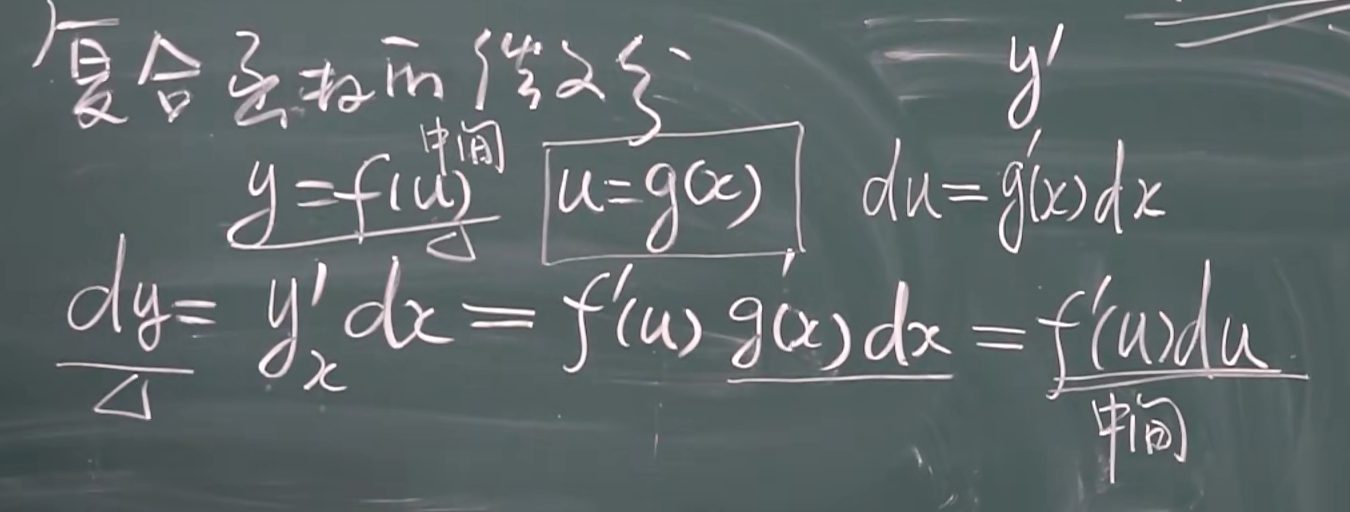 复合函数的微分
y'
中间
y=f(u) u=g(x) du=g'(x)dx
dy=y'ₓdx=f'(u)g'(x)dx=f'(u)du
中间